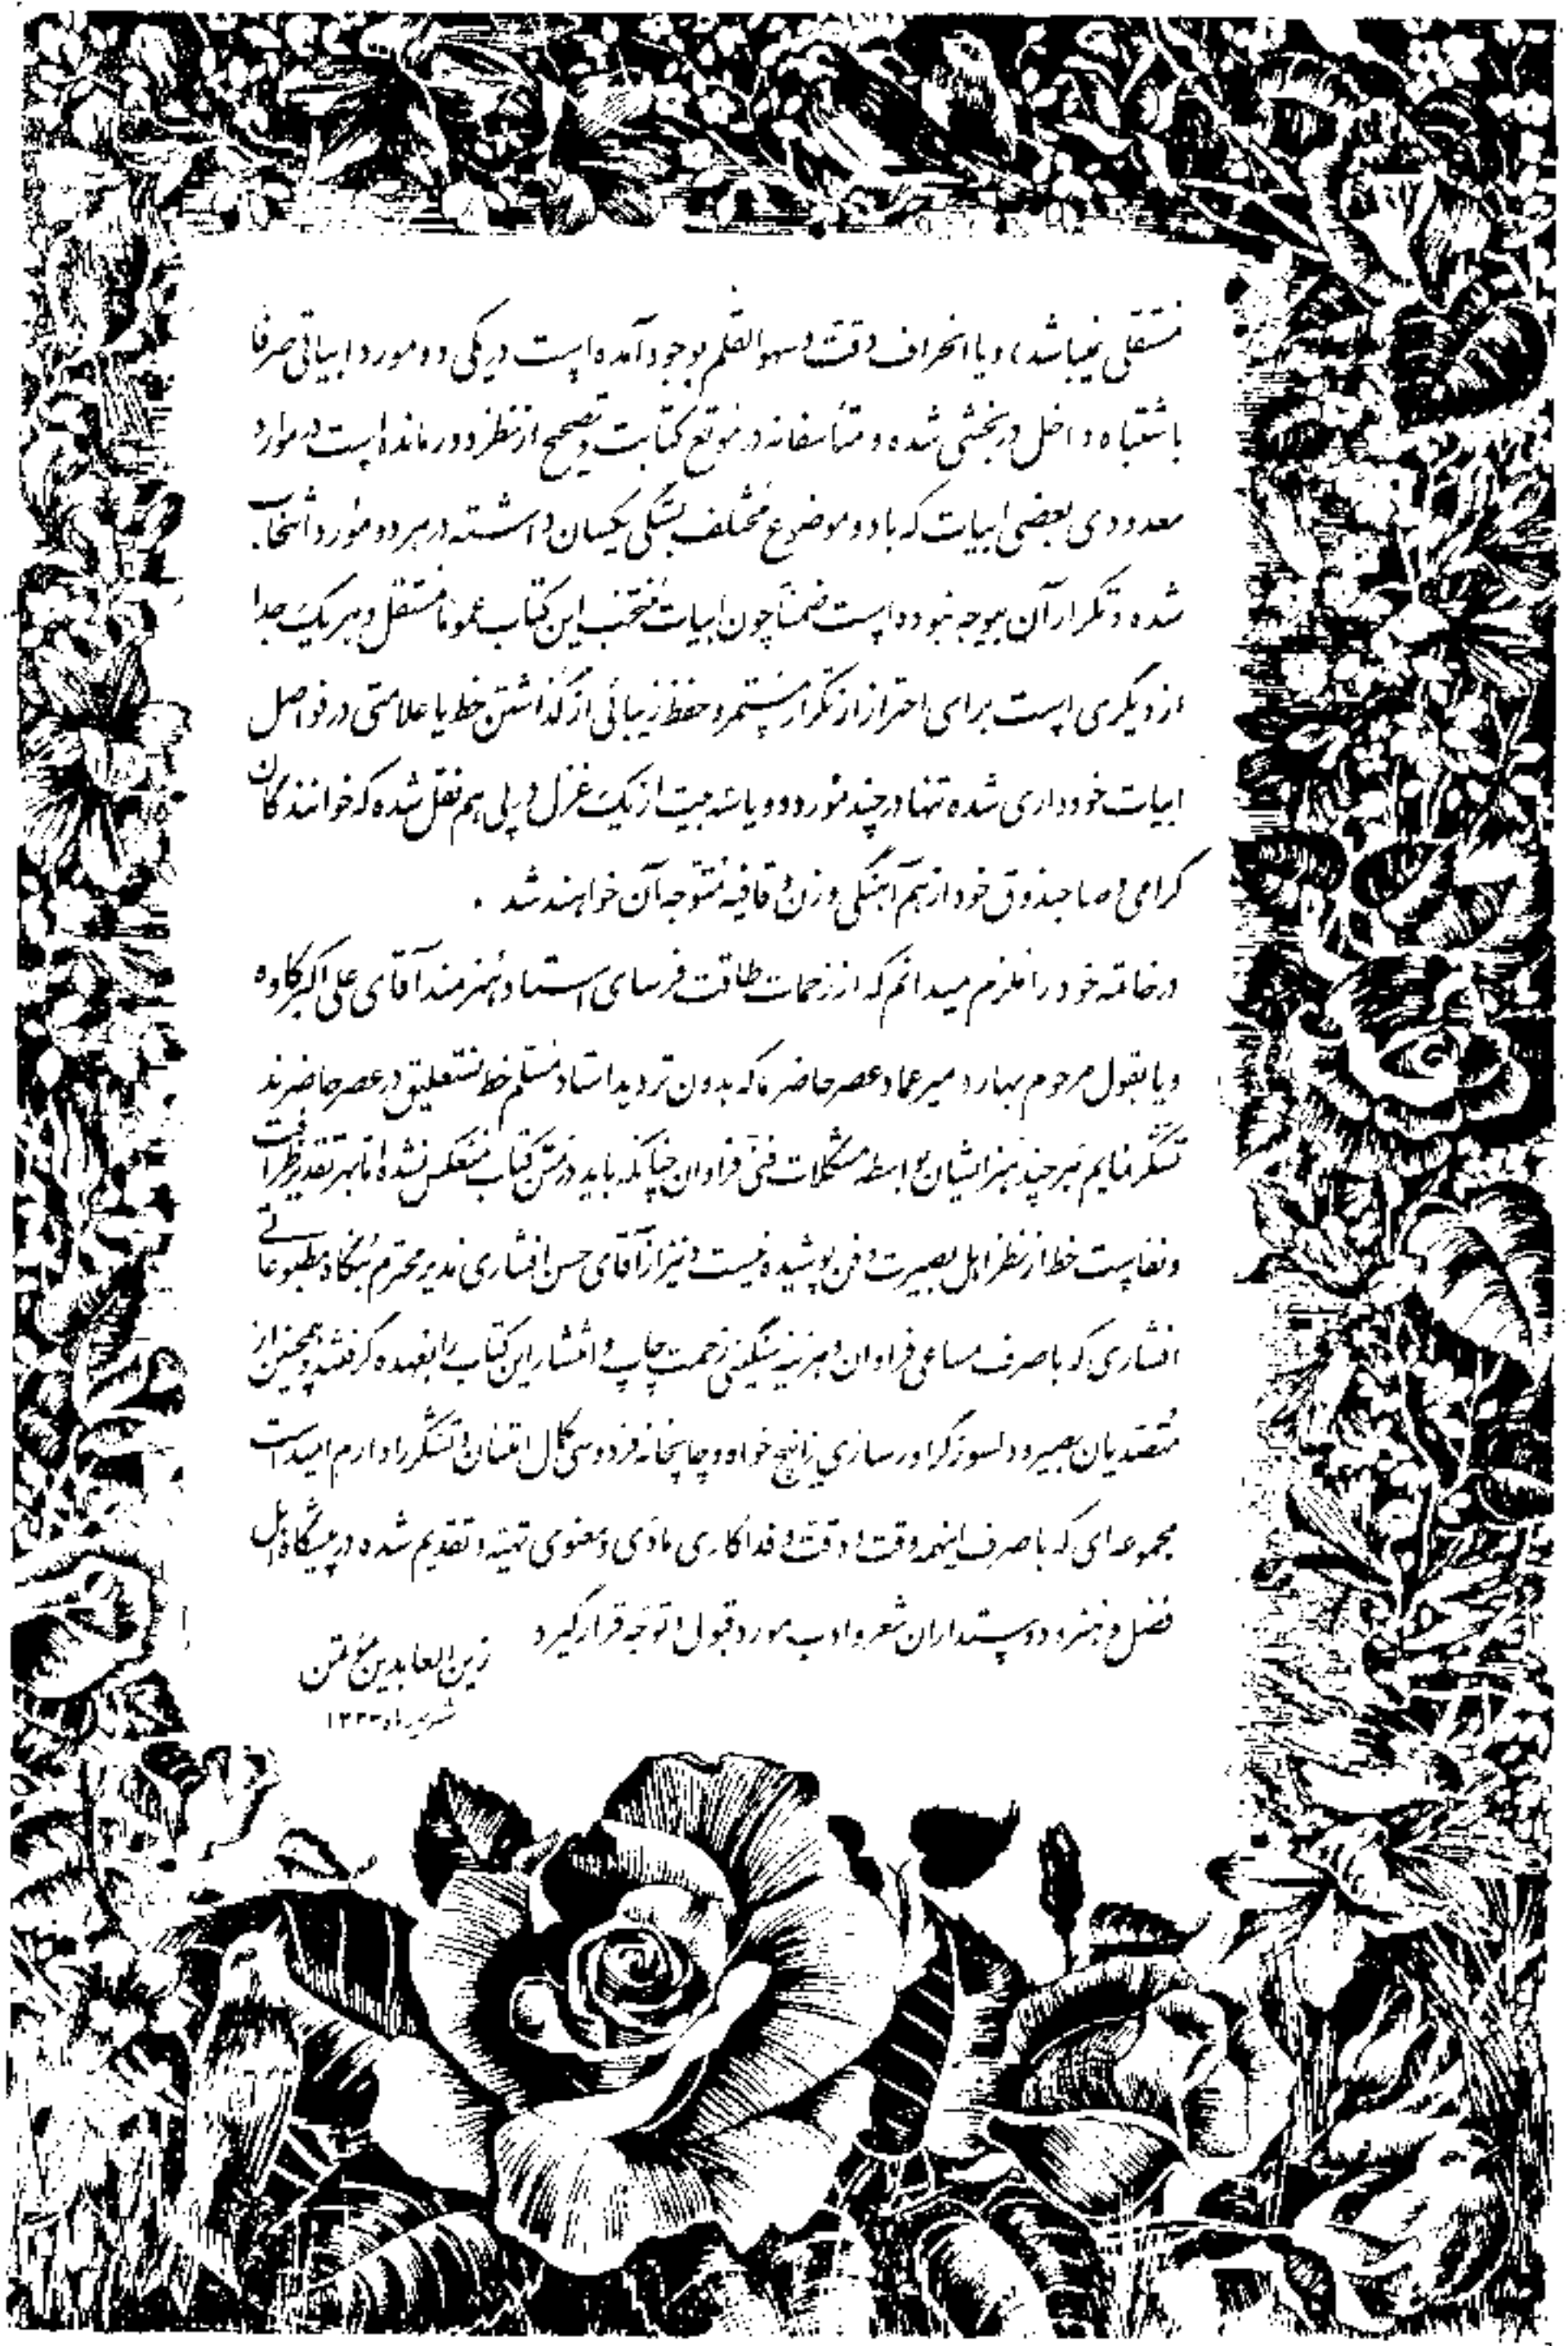 مستقلی نمیباشد) و یا انحراف دقت و سهوالقلم بوجود آمده است در یکی دو مورد ابیاتی صرفا
باشتباه داخل در بخشی شده و متأسفانه در موقع کتابت و تصحیح از نظر دور مانده است در موارد
معدودی بعضی ابیات که با دو موضوع مختلف بستگی یکسان داشته در هر دو مورد انتخاب
شده و تکرار آن بیوجه نبوده است ضمناً چون ابیات منتخب این کتاب عموماً مستقل و هر یک جدا
از دیگری است برای احتراز از تکرار مستمر و حفظ زیبائی از گذاشتن خط یا علامتی در فواصل
ابیات خودداری شده تنها در چند مورد دو یا سه بیت از یک غزل در پی هم نقل شده که خوانندگان
گرامی و صاحبذوق خود از هم آهنگی وزن و قافیه متوجه آن خواهند شد .
در خاتمه خود را ملزم میدانم که از زحمات طاقت فرسای استاد هنرمند آقای علی اکبر کاوه
و یا بقول مرحوم بهار «میرعماد عصر حاضر» که بدون تردید استاد مسلم خط نستعلیق در عصر حاضرند
تشکر نمایم هر چند هنر ایشان بواسطه مشکلات فنی فراوان چنانکه باید در متن کتاب منعکس نشده اما بهر تقدیر ظرافت
و نفاست خط از نظر اهل بصیرت و فن پوشیده نیست و نیز از آقای حسن افشاری مدیر محترم بنگاه مطبوعاتی
افشاری که با صرف مساعی فراوان و هزینه سنگین زحمت چاپ و انتشار این کتاب را بعهده گرفتند و همچنین از
متصدیان بصیر و دلسوز گراورسازی خواه و چاپخانه فردوسی کمال امتنان و تشکر را دارم امید است
مجموعه‌ای که با صرف اینهمه وقت و دقت و فداکاری مادی و معنوی تهیه و تقدیم شده در پیشگاه اهل
فضل و هنر و دوستداران شعر و ادب مورد قبول و توجه قرار گیرد
زین العابدین مؤتمن
شهریور ماه ۱۳۳۳